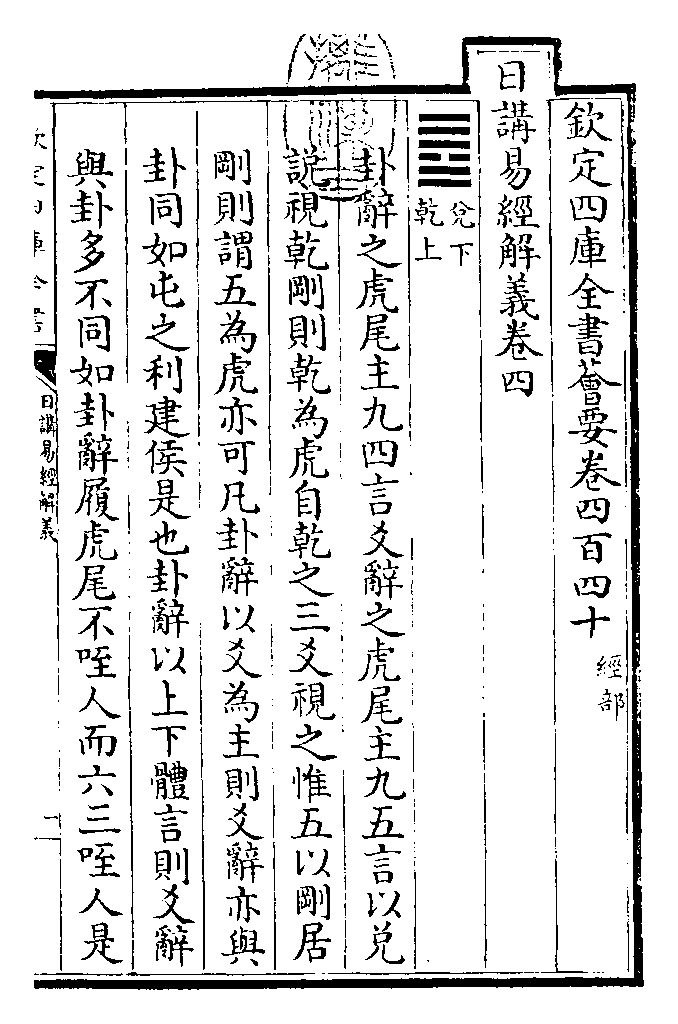 欽定四庫全書薈要卷四百四十 經部
日講易經解義卷四
兌下
乾上
卦辭之虎尾主九四言爻辭之虎尾主九五言以兌
說視乾剛則乾為虎自乾之三爻視之惟五以剛居
剛則謂五為虎亦可凡卦辭以爻為主則爻辭亦與
卦同如屯之利建侯是也卦辭以上下體言則爻辭
與卦多不同如卦辭履虎尾不咥人而六三咥人是
日講易經解義